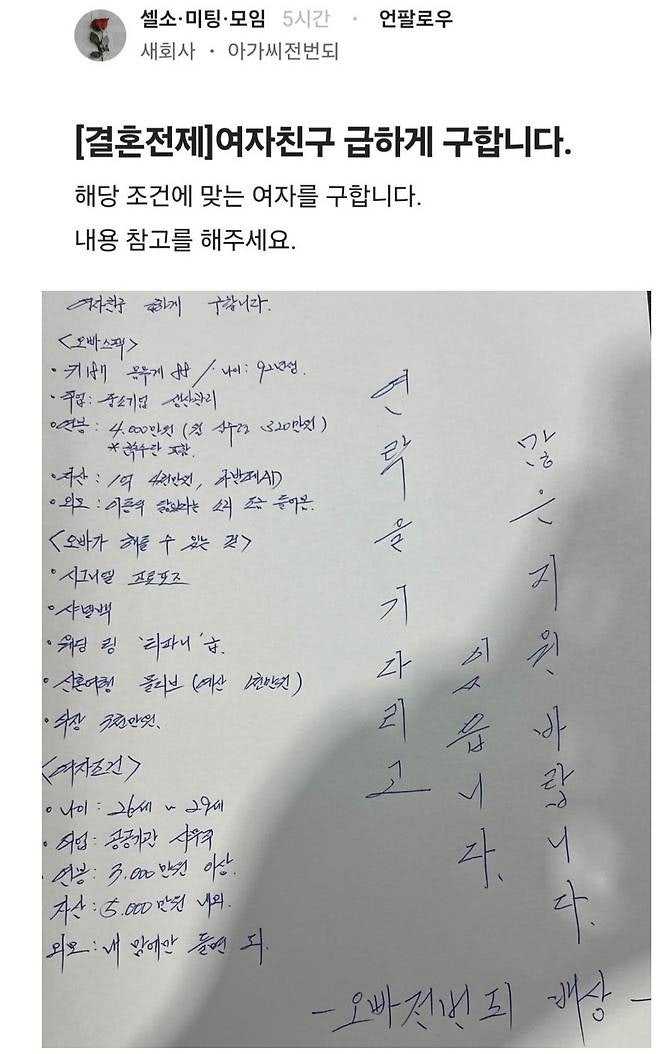 셀소·미팅·모임 5시간 · 언팔로우
새회사 · 아가씨전번되
[결혼전제]여자친구 급하게 구합니다.
해당 조건에 맞는 여자를 구합니다.
내용 참고를 해주세요.
여자친구 급하게 구합니다.
<오빠스펙>
· 키 187 몸무게 88 / 나이: 92년생.
· 직업: 중소기업 생산관리
· 연봉: 4.000만원 (월 실수령 320만원)
* 특수수당 포함.
· 자산: 1억 4천만원,
· 외모: 이동욱 닮았다는 소리 조금 들어봄.
<오빠가 해줄 수 있는 것>
· 시그니엘 프로포즈
· 샤넬백
· 웨딩 링 '티파니'급.
· 신혼여행 몰디브 (예산 1천만원)
· 천만원.
<여자조건>
· 나이: 26세 ~ 29세
· 직업: 공공기관 사무직
· 연봉: 3.000만원 이상.
자산: 5.000만원 내외.
외모: 내 맘에만 들면 되.
연락을 기다리고
있읍니다.
많은 지원 바랍니다.
- 오빠전번되 배상 -